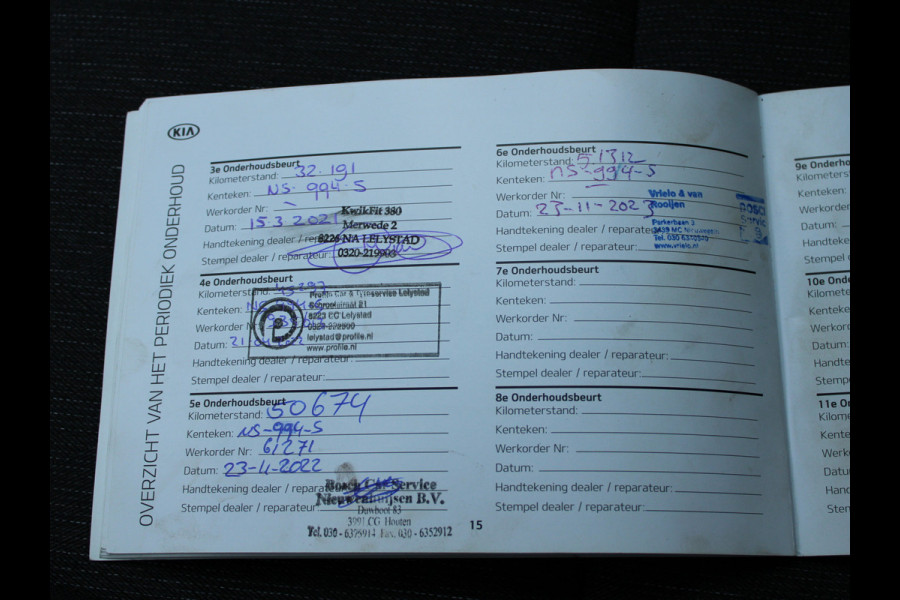 KIA
OVERZICHT VAN HET PERIODIEK ONDERHOUD
3e Onderhoudsbeurt
Kilometerstand: 32.191
Kenteken: NS-994-S
Werkorder Nr:
Datum: 15.3.2021
Handtekening dealer / reparateur:
Stempel dealer / reparateur:
KwikFit 380
Merwede 2
8226 NA LELYSTAD
0320-219903
4e Onderhoudsbeurt
Kilometerstand:
Kenteken:
Werkorder Nr:
Datum:
Handtekening dealer / reparateur:
Stempel dealer / reparateur:
Profile Car & Tyreservice Lelystad
8223 CG Lelystad
lelystad@profile.nl
www.profile.nl
5e Onderhoudsbeurt
Kilometerstand: 50674
Kenteken: NS-994-S
Werkorder Nr: 61271
Datum: 23-4-2022
Handtekening dealer / reparateur:
Stempel dealer / reparateur:
Bosch Car Service
Nieuwenhuijsen B.V.
3991 CG Houten
15
6e Onderhoudsbeurt
Kilometerstand: 51312
Kenteken: NS-994-S
Werkorder Nr:
Datum: 23-11-2023
Handtekening dealer / reparateur:
Stempel dealer / reparateur:
Vrielo & van
Rooijen
www.vrielo.nl
7e Onderhoudsbeurt
Kilometerstand:
Kenteken:
Werkorder Nr:
Datum:
Handtekening dealer / reparateur:
Stempel dealer / reparateur:
8e Onderhoudsbeurt
Kilometerstand:
Kenteken:
Werkorder Nr:
Datum:
Handtekening dealer / reparateur:
Stempel dealer / reparateur:
9e Onderho
Kilometers
Kenteken:
Werkorder
Datum:
Handteke
Stempel
10e Onde
Kilomete
Kenteke
Werkor
Datum:
Handte
Stemp
11e On
Kilom
Kente
Werk
Datu
Hand
Sten